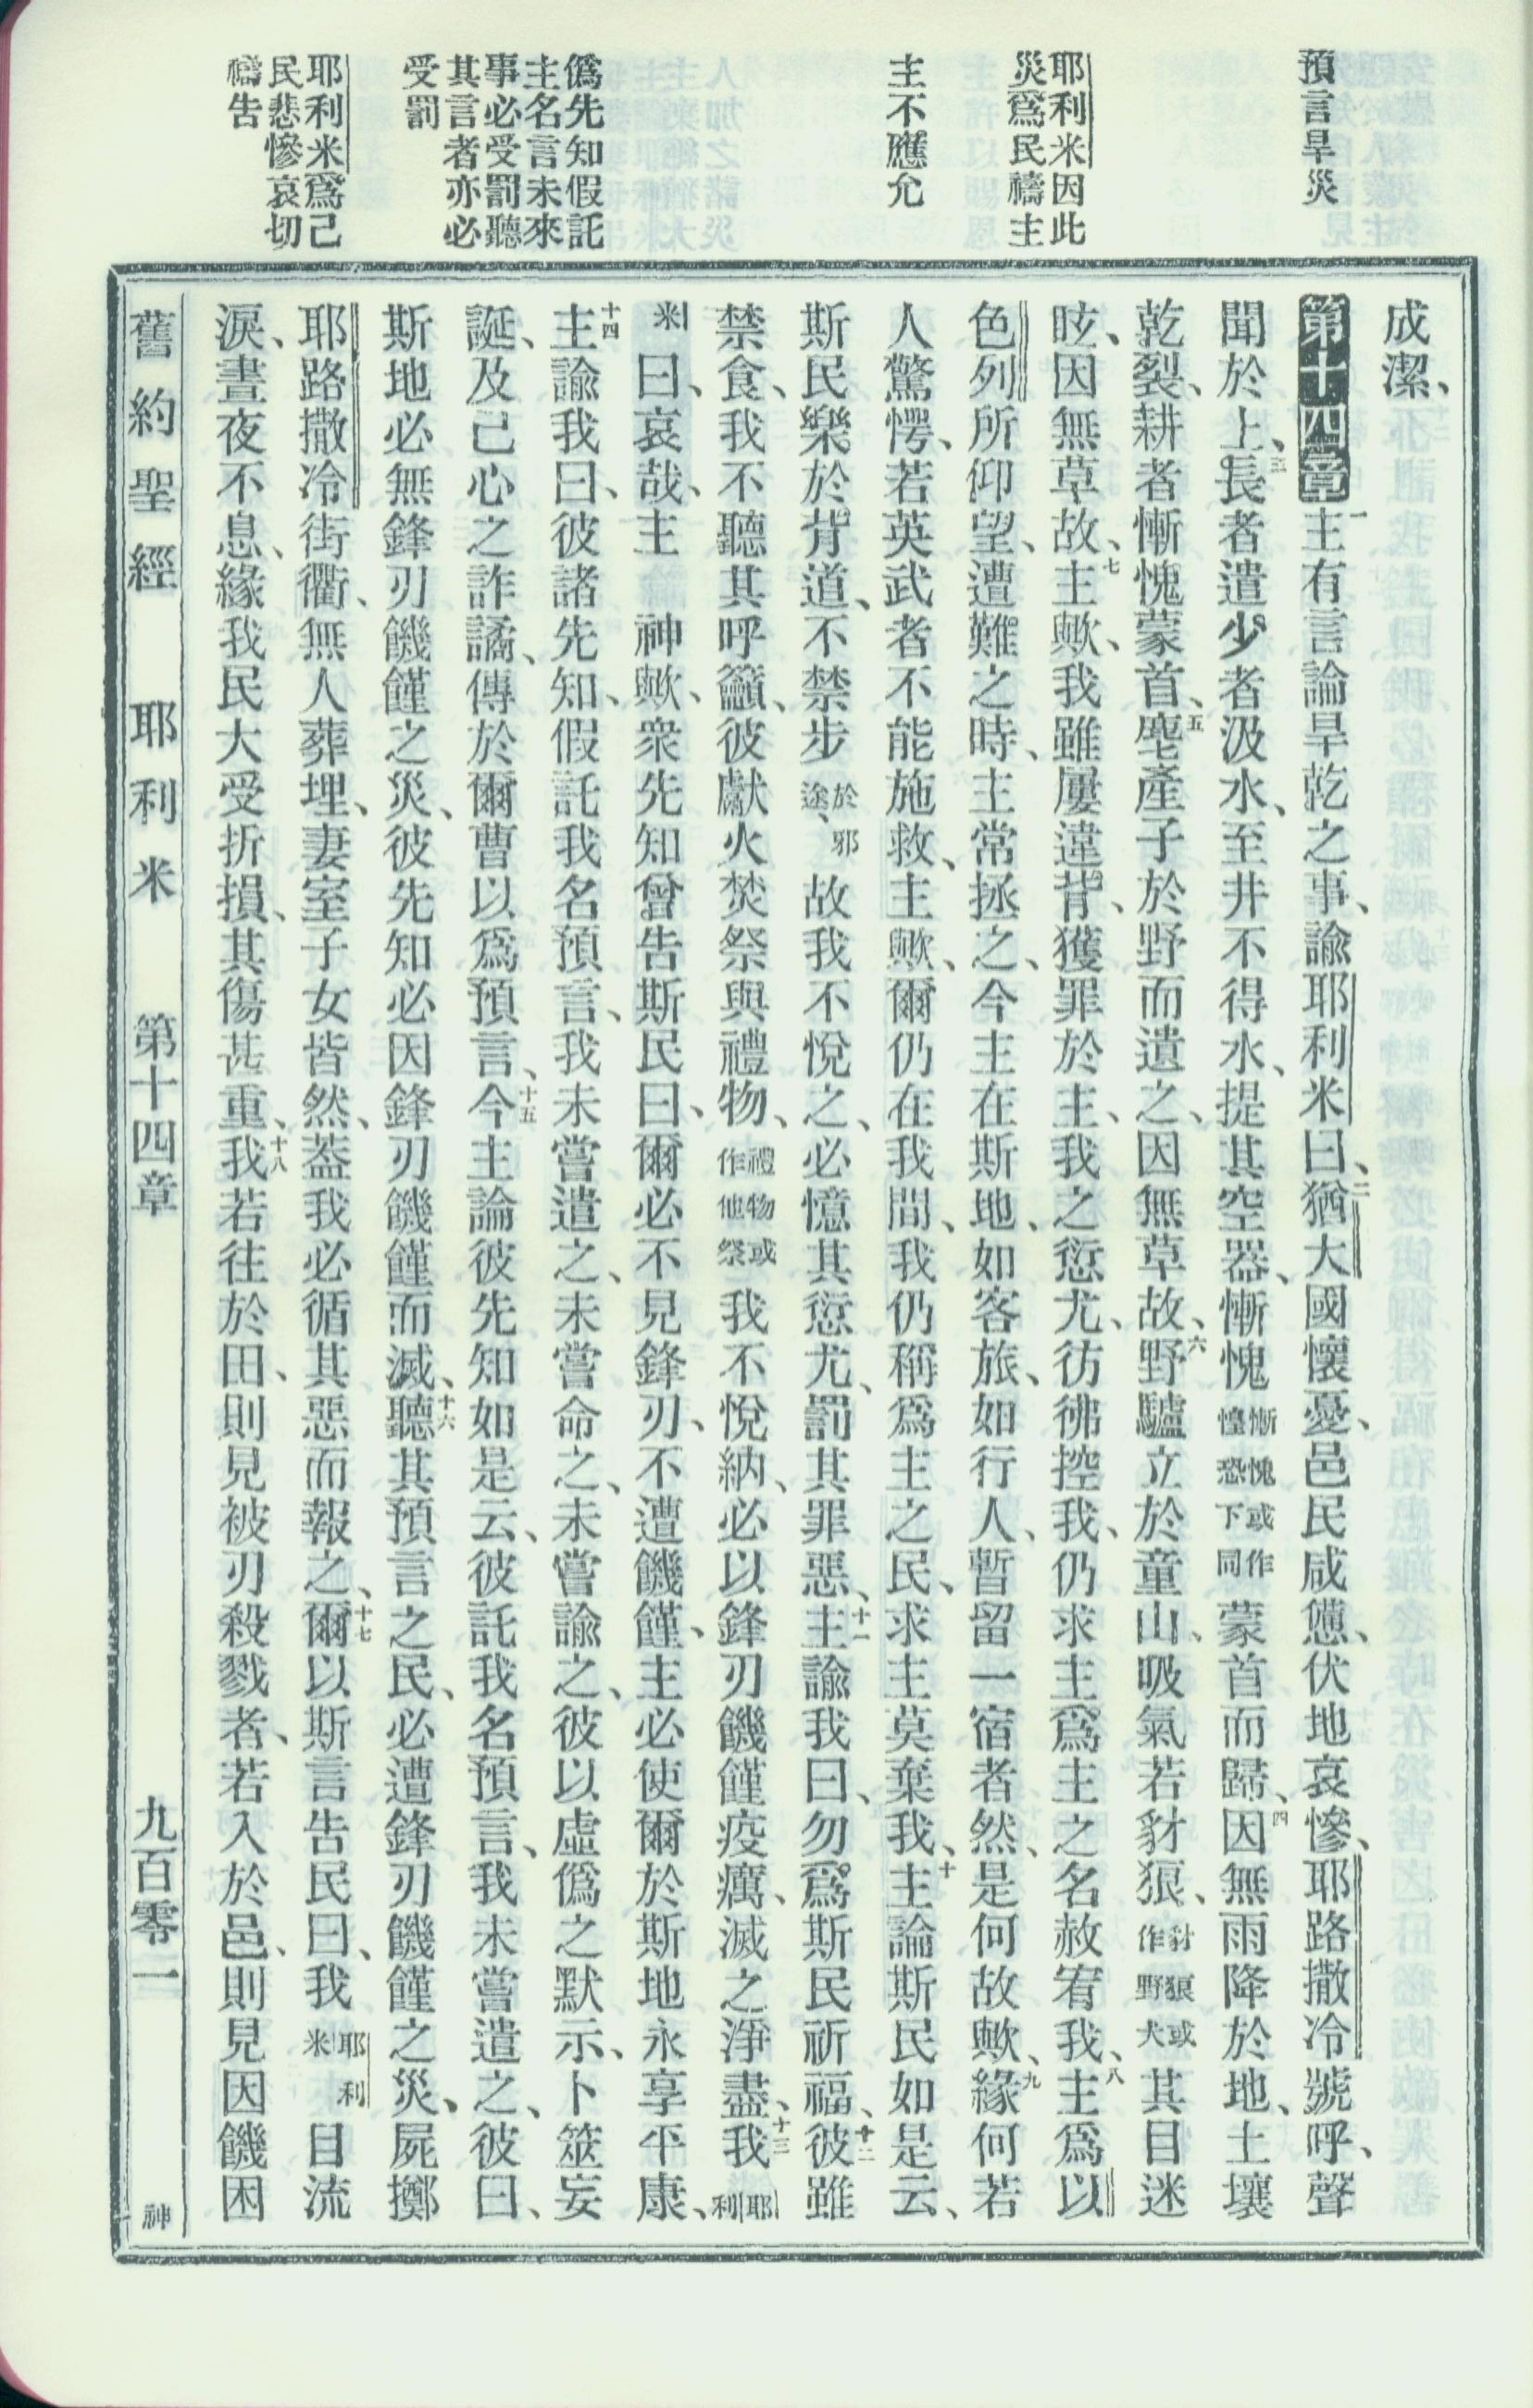 預言旱災
耶利米因此
災爲民禱主
主不應允
僞先知假託
主名言未來
事必受罰聽
其言者亦必
受罰
耶利米爲己
民悲慘哀切
禱告
成潔、
第十四章一主有言論旱乾之事、諭耶利米曰、二猶大國懷憂、邑民咸憊、伏地哀慘、耶路撒冷號呼、聲
聞於上、三長者遣少者汲水、至井不得水、提其空器、慚愧慚愧或作惶恐下同蒙首而歸、四因無雨降於地、土壤
乾裂、耕者慚愧蒙首、五麀產子於野而遺之、因無草故、六野驢立於童山、吸氣若豺狼、豺狼或作野犬其目迷
眩、因無草故、七主歟、我雖屢違背、獲罪於主、我之愆尤、彷彿控我、仍求主爲主之名赦宥我、八主爲以
色列所仰望、遭難之時、主常拯之、今主在斯地、如客旅、如行人、暫留一宿者然、是何故歟、九緣何若
人驚愕、若英武者不能施救、主歟、爾仍在我間、我仍稱爲主之民、求主莫棄我、十主論斯民如是云、
斯民樂於背道、不禁步於邪途、故我不悅之、必憶其愆尤、罰其罪惡、十一主諭我曰、勿爲斯民祈福、十二彼雖
禁食、我不聽其呼籲、彼獻火焚祭與禮物、禮物或作他祭我不悅納、必以鋒刃饑饉疫癘、滅之淨盡、十三我耶利
米曰、哀哉、主 神歟、衆先知曾告斯民曰、爾必不見鋒刃、不遭饑饉、主必使爾於斯地永享平康、
十四主諭我曰、彼諸先知、假託我名預言、我未嘗遣之、未嘗命之、未嘗諭之、彼以虛僞之默示、卜筮妄
誕、及己心之詐譎、傳於爾曹以爲預言、十五今主論彼先知如是云、彼託我名預言、我未嘗遣之、彼曰、
斯地必無鋒刃饑饉之災、彼先知必因鋒刃饑饉而滅、十六聽其預言之民、必遭鋒刃饑饉之災、屍擲
耶路撒冷街衢、無人葬埋、妻室子女皆然、葢我必循其惡而報之、十七爾以斯言告民曰、我耶利米目流
淚、晝夜不息、緣我民大受折損、其傷甚重、十八我若往於田、則見被刃殺戮者、若入於邑、則見因饑困
舊約聖經 耶利米 第十四章 九百零一 神